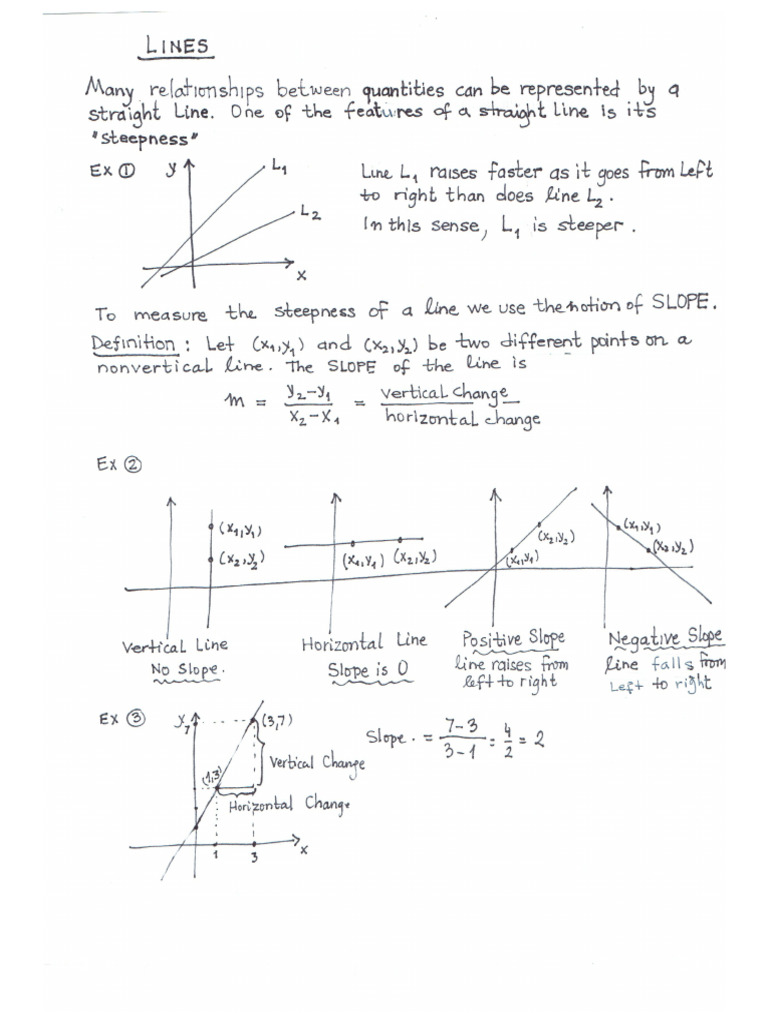 LINES
Many relationships between quantities can be represented by a
straight Line. One of the features of a straight line is it's
"steepness"
Ex ① y L₁
L₂
x
Line L₁ raises faster as it goes from Left
to right than does line L₂.
In this sense, L₁ is steeper.
To measure the steepness of a line we use the notion of SLOPE.
Definition: Let (x₁,y₁) and (x₂,y₂) be two different points on a
nonvertical line. The SLOPE of the line is
m = y₂-y₁ / x₂-x₁ = vertical change / horizontal change
Ex ②
(x₁,y₁)
(x₂,y₂)
(x₁,y₁) (x₂,y₂)
(x₂,y₂)
(x₁,y₁)
(x₁,y₁)
(x₂,y₂)
Vertical Line
No Slope.
Horizontal Line
Slope is 0
Positive Slope
line raises from
left to right
Negative Slope
line falls from
Left to right
Ex ③ y
7
(3,7)
(1,3)
Vertical Change
Horizontal Change
1 3 x
Slope. = 7-3 / 3-1 = 4/2 = 2